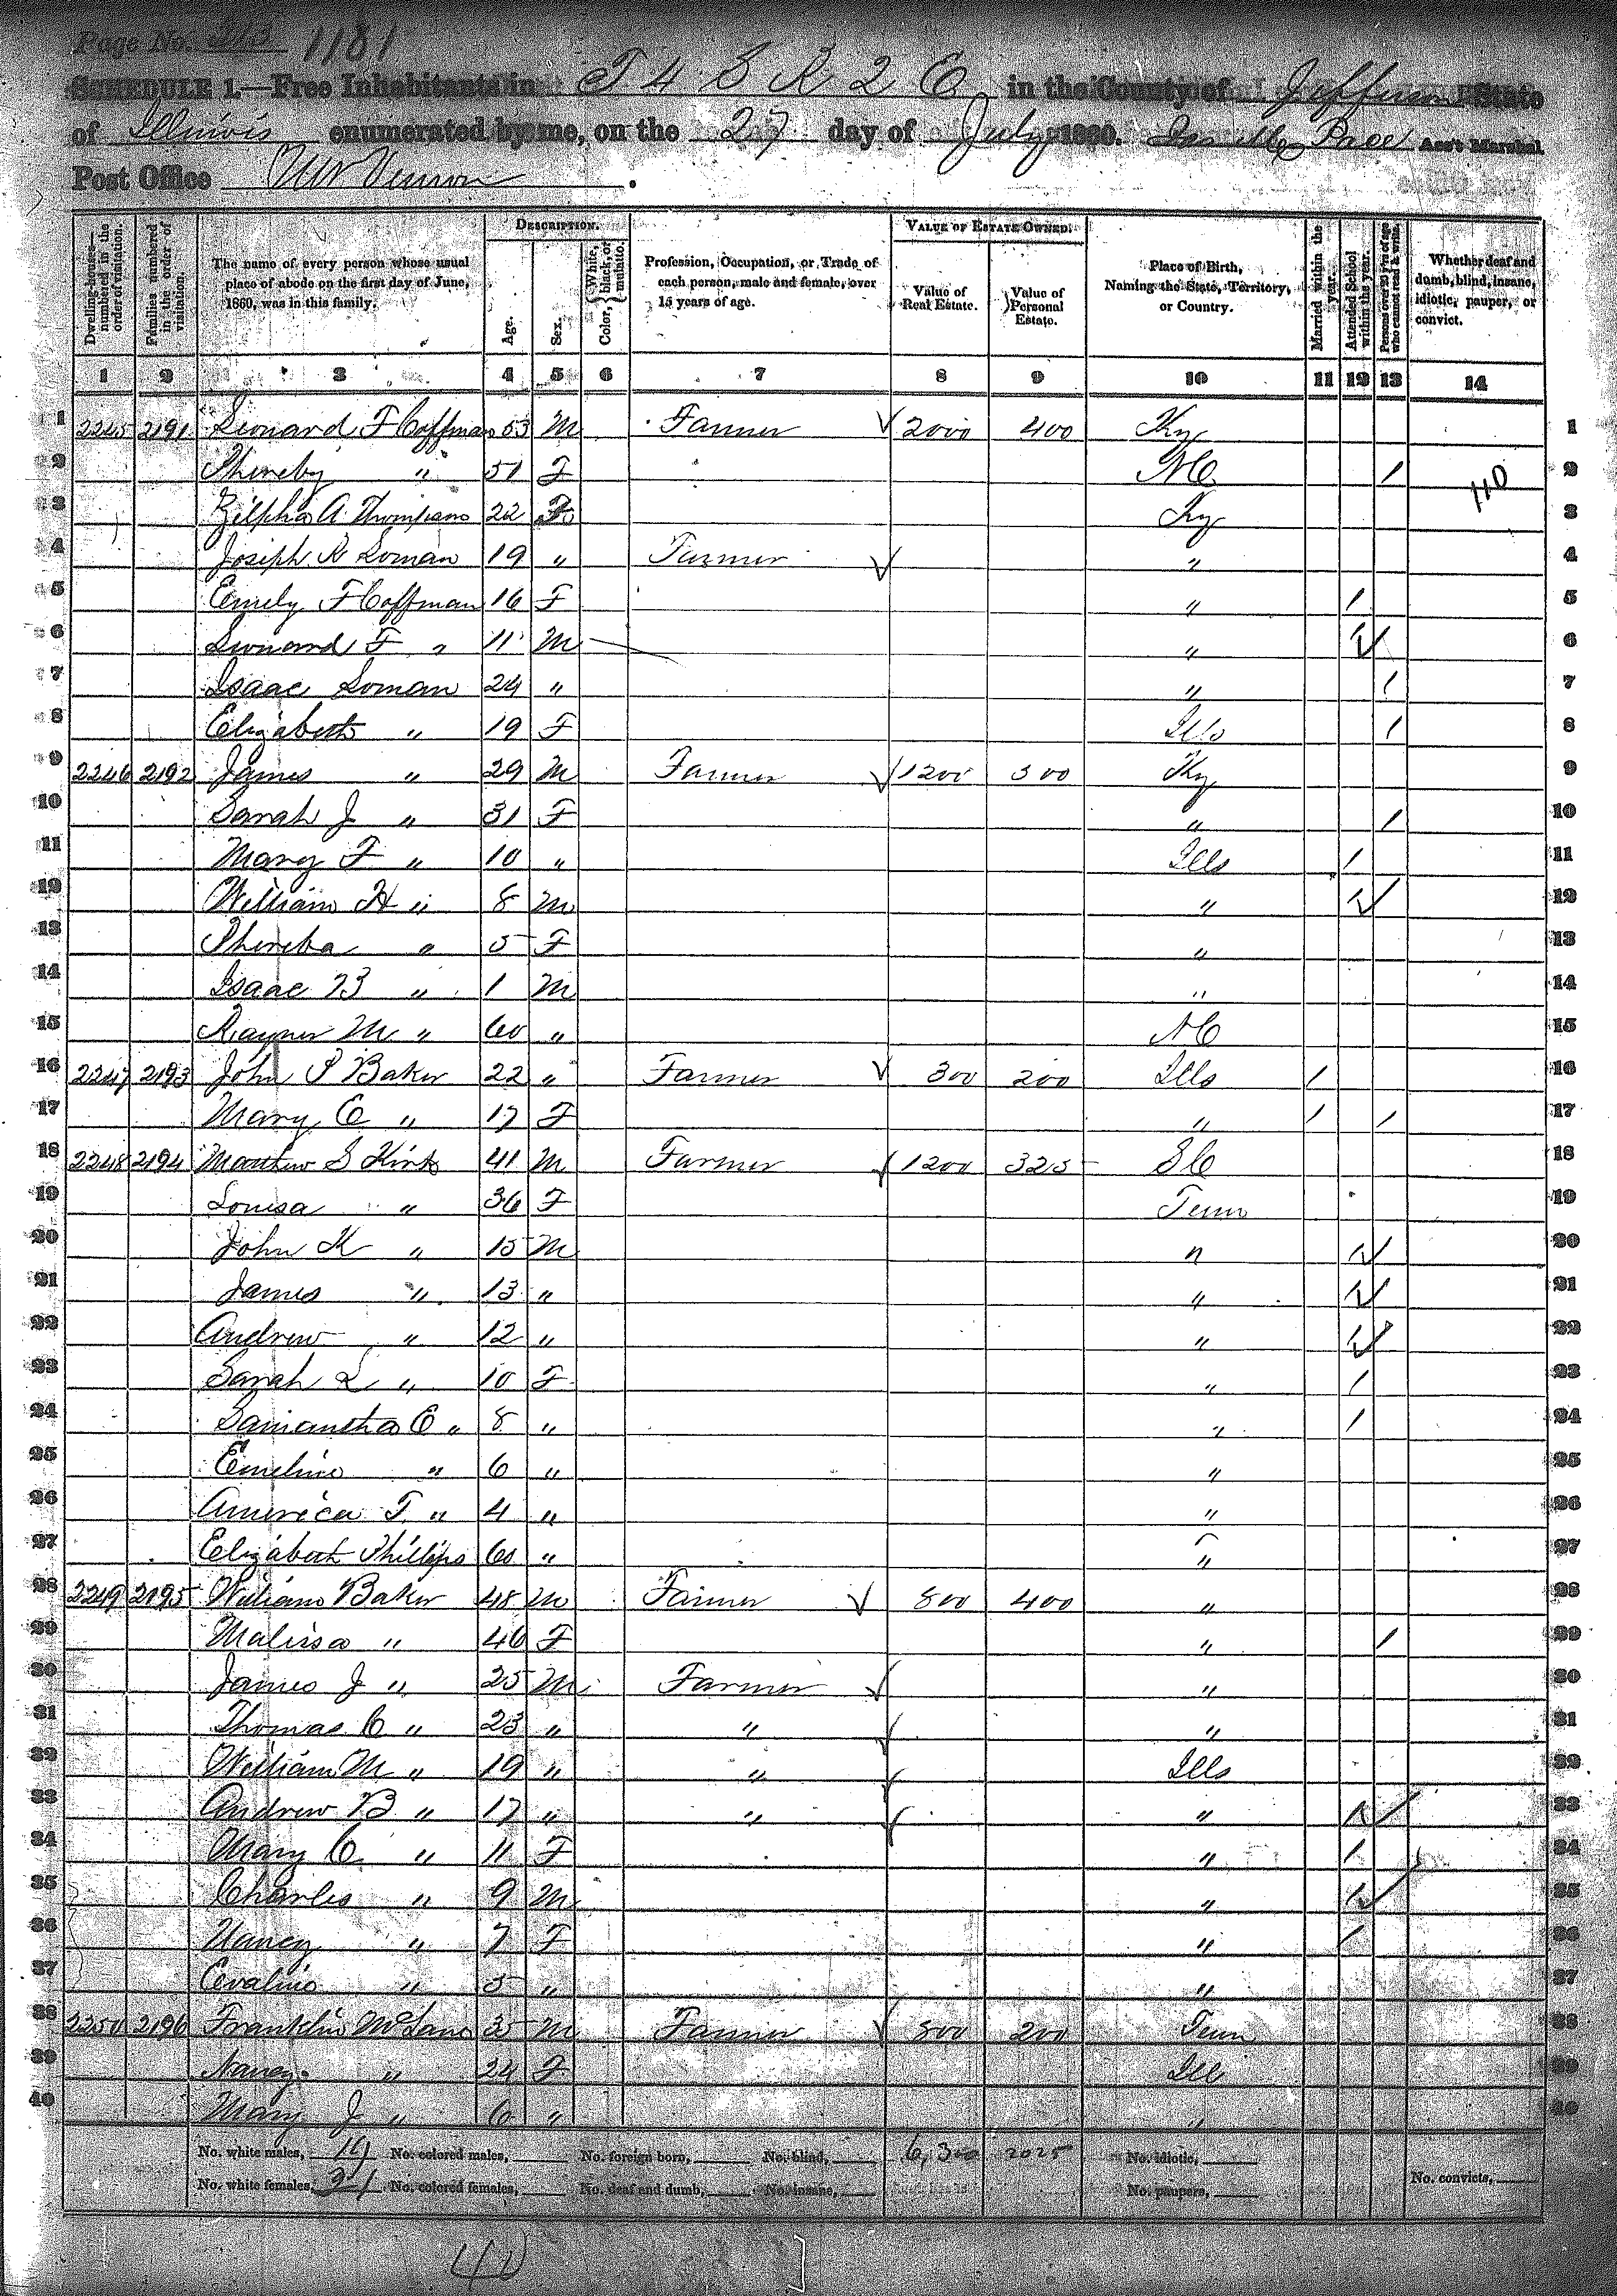 Page No. 313 1181
SCHEDULE 1.—Free Inhabitants in T 4 S R 2 E in the County of Jefferson State
of Illinois enumerated by me, on the 27 day of July 1860. Pace Ass't Marshal
Post Office Mt Vernon.
Dwelling-houses—numbered in the order of visitation. Families numbered in the order of visitation. The name of every person whose usual place of abode on the first day of June, 1860, was in this family. DESCRIPTION. Age. Sex. Color, White, black, or mulatto. Profession, Occupation, or Trade of each person, male and female, over 15 years of age. VALUE OF ESTATE OWNED. Value of Real Estate. Value of Personal Estate. Place of Birth, Naming the State, Territory, or Country. Married within the year. Attended School within the year. Persons over 20 y'rs of age who cannot read & write. Whether deaf and dumb, blind, insane, idiotic, pauper, or convict.
1 2 3 4 5 6 7 8 9 10 11 12 13 14
1 2245 2191 Leonard F Coffman 53 M Farmer 2000 400 Ky 1
2 Phireby " 51 F NC / 2 110
3 Zilpha A Thompson 22 F Ky 3
4 Joseph R Loman 19 " Farmer " 4
5 Emily F Coffman 16 F " / 5
6 Leonard F " 11 M " / 6
7 Isaac Loman 24 " " / 7
8 Elizabeth " 19 F Ills / 8
9 2246 2192 James " 29 M Farmer 1200 300 Ky 9
10 Sarah J " 31 F " / 10
11 Mary F " 10 " Ills / 11
12 William H " 8 M " / 12
13 Phireba " 5 F " 13
14 Isaac B " 1 M " 14
15 Rayner M " 60 " NC 15
16 2247 2193 John P Baker 22 " Farmer 300 200 Ills / 16
17 Mary E " 17 F " / / 17
18 2248 2194 Matthew S Kirk 41 M Farmer 1200 325 SC 18
19 Louisa " 36 F Tenn 19
20 John K " 15 M " / 20
21 James " 13 " " / 21
22 Andrew " 12 " " / 22
23 Sarah L " 10 F " / 23
24 Samantha E " 8 " " / 24
25 Emeline " 6 " " 25
26 America T " 4 " " 26
27 Elizabeth Phillips 60 " " 27
28 2249 2195 William Baker 48 M Farmer 800 400 " 28
29 Malissa " 46 F " / 29
30 James J " 25 M Farmer " 30
31 Thomas C " 23 " " " 31
32 William M " 19 " " Ills 32
33 Andrew B " 17 " " " / 33
34 Mary C " 11 F " / 34
35 Charles " 9 M " / 35
36 Nancy " 7 F " / 36
37 Evaline " 5 " " 37
38 2250 2196 Franklin McLane 35 M Farmer 800 200 Tenn 38
39 Nancy " 24 F Ill 39
40 Mary J " 6 " " 40
No. white males, 19 No. colored males, No. foreign born, No. blind, 6,300 2025 No. idiotic,
No. white females, 21 No. colored females, No. deaf and dumb, No. insane, No. paupers, No. convicts,
40